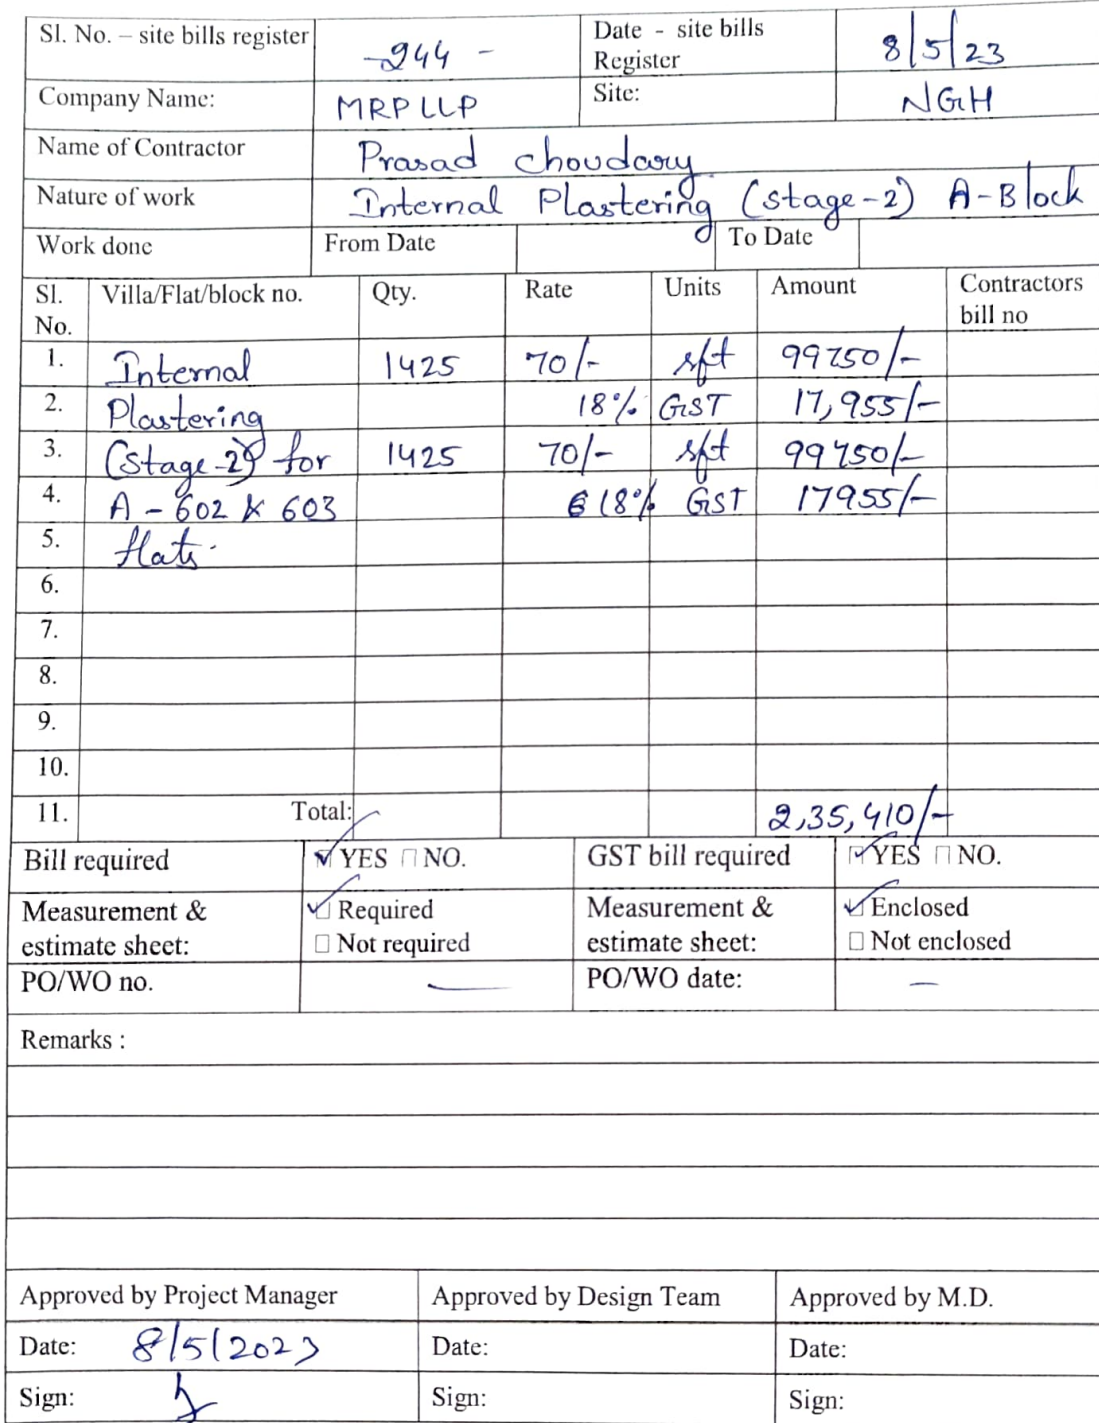 Sl. No. – site bills register -244 - Date - site bills Register 8/5/23
Company Name: MRP LLP Site: NGH
Name of Contractor Prasad choudary
Nature of work Internal Plastering (stage-2) A-Block
Work done From Date To Date
Sl. No. Villa/Flat/block no. Qty. Rate Units Amount Contractors bill no
1. Internal 1425 70/- sft 99750/-
2. Plastering 18% GST 17,955/-
3. (stage-2) for 1425 70/- sft 99750/-
4. A - 602 & 603 18% GST 17955/-
5. flats.
6.
7.
8.
9.
10.
11. Total: 2,35,410/-
Bill required YES NO. GST bill required YES NO.
Measurement & estimate sheet: Required Not required Measurement & estimate sheet: Enclosed Not enclosed
PO/WO no. — PO/WO date: —
Remarks :
Approved by Project Manager Approved by Design Team Approved by M.D.
Date: 8/5/2023 Date: Date:
Sign: Sign: Sign: